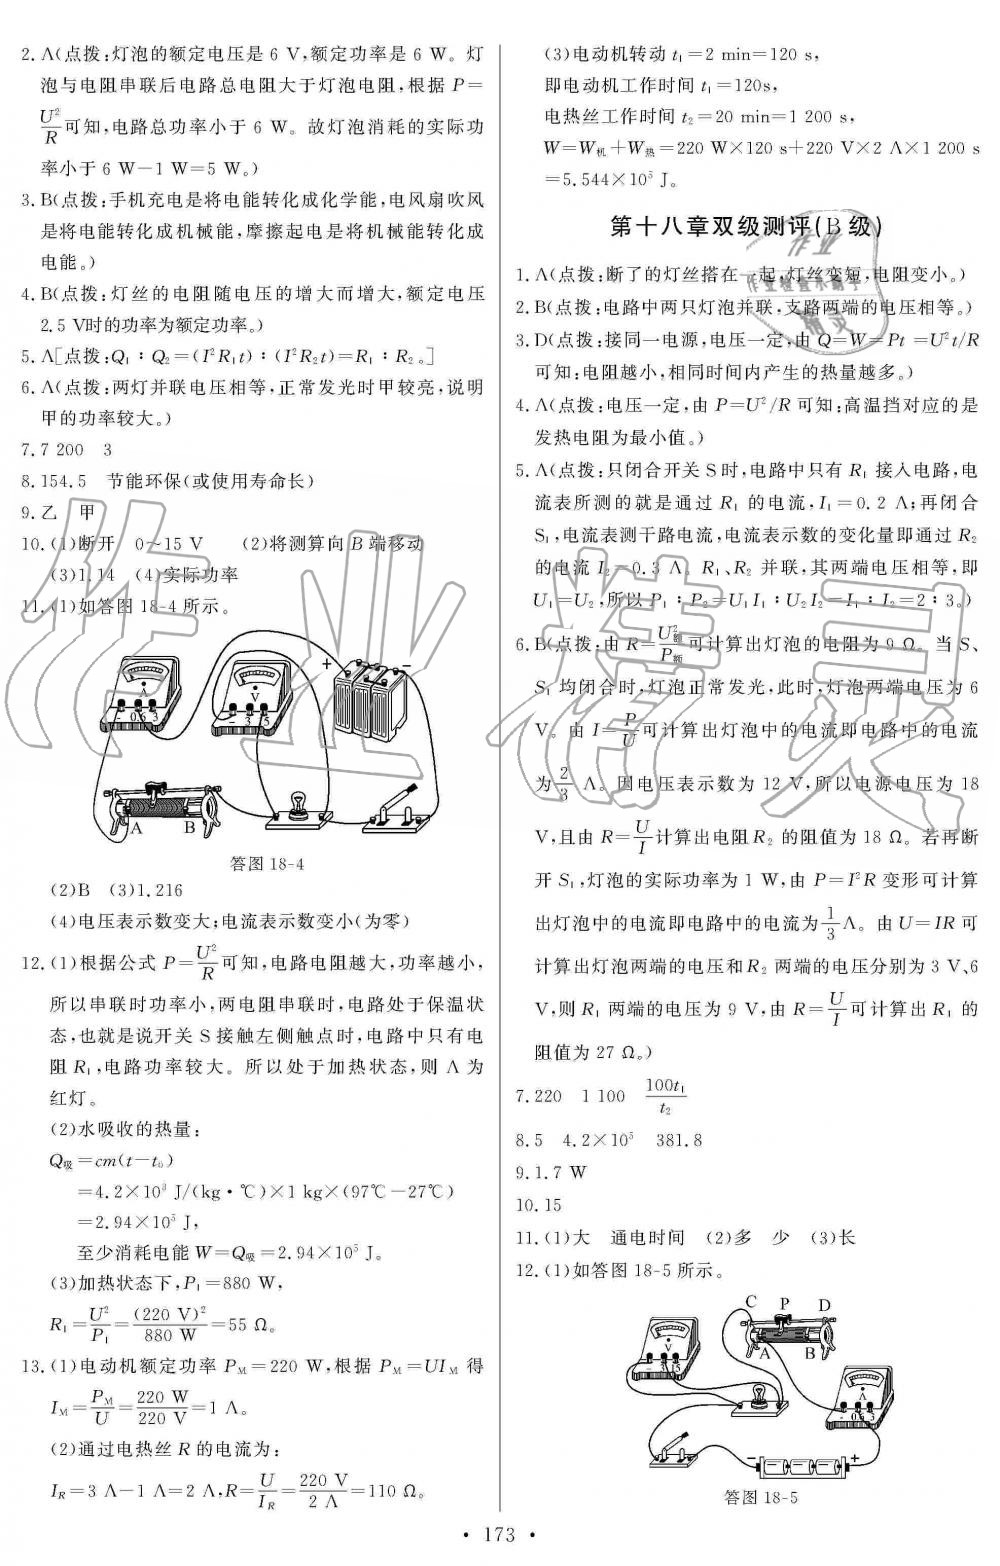 2.A(点拨:灯泡的额定电压是 6 V,额定功率是 6 W。灯
泡与电阻串联后电路总电阻大于灯泡电阻,根据 P=
U²/R可知,电路总功率小于 6 W。故灯泡消耗的实际功
率小于 6 W-1 W=5 W。)
3.B(点拨:手机充电是将电能转化成化学能,电风扇吹风
是将电能转化成机械能,摩擦起电是将机械能转化成
电能。)
4.B(点拨:灯丝的电阻随电压的增大而增大,额定电压
2.5 V时的功率为额定功率。)
5.A[点拨:Q₁∶Q₂=(I²R₁t)∶(I²R₂t)=R₁∶R₂。]
6.A(点拨:两灯并联电压相等,正常发光时甲较亮,说明
甲的功率较大。)
7.7 200 3
8.154.5 节能环保(或使用寿命长)
9.乙 甲
10.(1)断开 0~15 V (2)将测算向 B 端移动
(3)1.14 (4)实际功率
11.(1)如答图 18-4 所示。
+ -
A V
- 0.6 3 - 3 15
A B
答图 18-4
(2)B (3)1.216
(4)电压表示数变大;电流表示数变小(为零)
12.(1)根据公式 P=U²/R可知,电路电阻越大,功率越小,
所以串联时功率小,两电阻串联时,电路处于保温状
态,也就是说开关 S 接触左侧触点时,电路中只有电
阻 R₁,电路功率较大。所以处于加热状态,则 A 为
红灯。
(2)水吸收的热量:
Q吸=cm(t-t₀)
=4.2×10³ J/(kg·℃)×1 kg×(97℃-27℃)
=2.94×10⁵ J,
至少消耗电能 W=Q吸=2.94×10⁵ J。
(3)加热状态下,P₁=880 W,
R₁=U²/P₁=(220 V)²/880 W=55 Ω。
13.(1)电动机额定功率 P_M=220 W,根据 P_M=UI_M 得
I_M=P_M/U=220 W/220 V=1 A。
(2)通过电热丝 R 的电流为:
I_R=3 A-1 A=2 A,R=U/I_R=220 V/2 A=110 Ω。
(3)电动机转动 t₁=2 min=120 s,
即电动机工作时间 t₁=120s,
电热丝工作时间 t₂=20 min=1 200 s,
W=W机+W热=220 W×120 s+220 V×2 A×1 200 s
=5.544×10⁵ J。
第十八章双级测评(B 级)
1.A(点拨:断了的灯丝搭在一起,灯丝变短,电阻变小。)
2.B(点拨:电路中两只灯泡并联,支路两端的电压相等。)
3.D(点拨:接同一电源,电压一定,由 Q=W=Pt=U²t/R
可知:电阻越小,相同时间内产生的热量越多。)
4.A(点拨:电压一定,由 P=U²/R 可知:高温挡对应的是
发热电阻为最小值。)
5.A(点拨:只闭合开关 S 时,电路中只有 R₁ 接入电路,电
流表所测的就是通过 R₁ 的电流,I₁=0.2 A;再闭合
S₁,电流表测干路电流,电流表示数的变化量即通过 R₂
的电流 I₂=0.3 A。R₁、R₂ 并联,其两端电压相等,即
U₁=U₂,所以 P₁∶P₂=U₁I₁∶U₂I₂=I₁∶I₂=2∶3。)
6.B(点拨:由 R=U²额/P额可计算出灯泡的电阻为 9 Ω。当 S、
S₁ 均闭合时,灯泡正常发光,此时,灯泡两端电压为 6
V。由 I=P/U可计算出灯泡中的电流即电路中的电流
为2/3 A。因电压表示数为 12 V,所以电源电压为 18
V,且由 R=U/I计算出电阻 R₂ 的阻值为 18 Ω。若再断
开 S₁,灯泡的实际功率为 1 W,由 P=I²R 变形可计算
出灯泡中的电流即电路中的电流为1/3 A。由 U=IR 可
计算出灯泡两端的电压和 R₂ 两端的电压分别为 3 V、6
V,则 R₁ 两端的电压为 9 V,由 R=U/I可计算出 R₁ 的
阻值为 27 Ω。)
7.220 1 100 100t₁/t₂
8.5 4.2×10⁵ 381.8
9.1.7 W
10.15
11.(1)大 通电时间 (2)多 少 (3)长
12.(1)如答图 18-5 所示。
C P D
V
- 3 15
A B
A
- 0.6 3
- +
答图 18-5
• 173 •
作业精灵